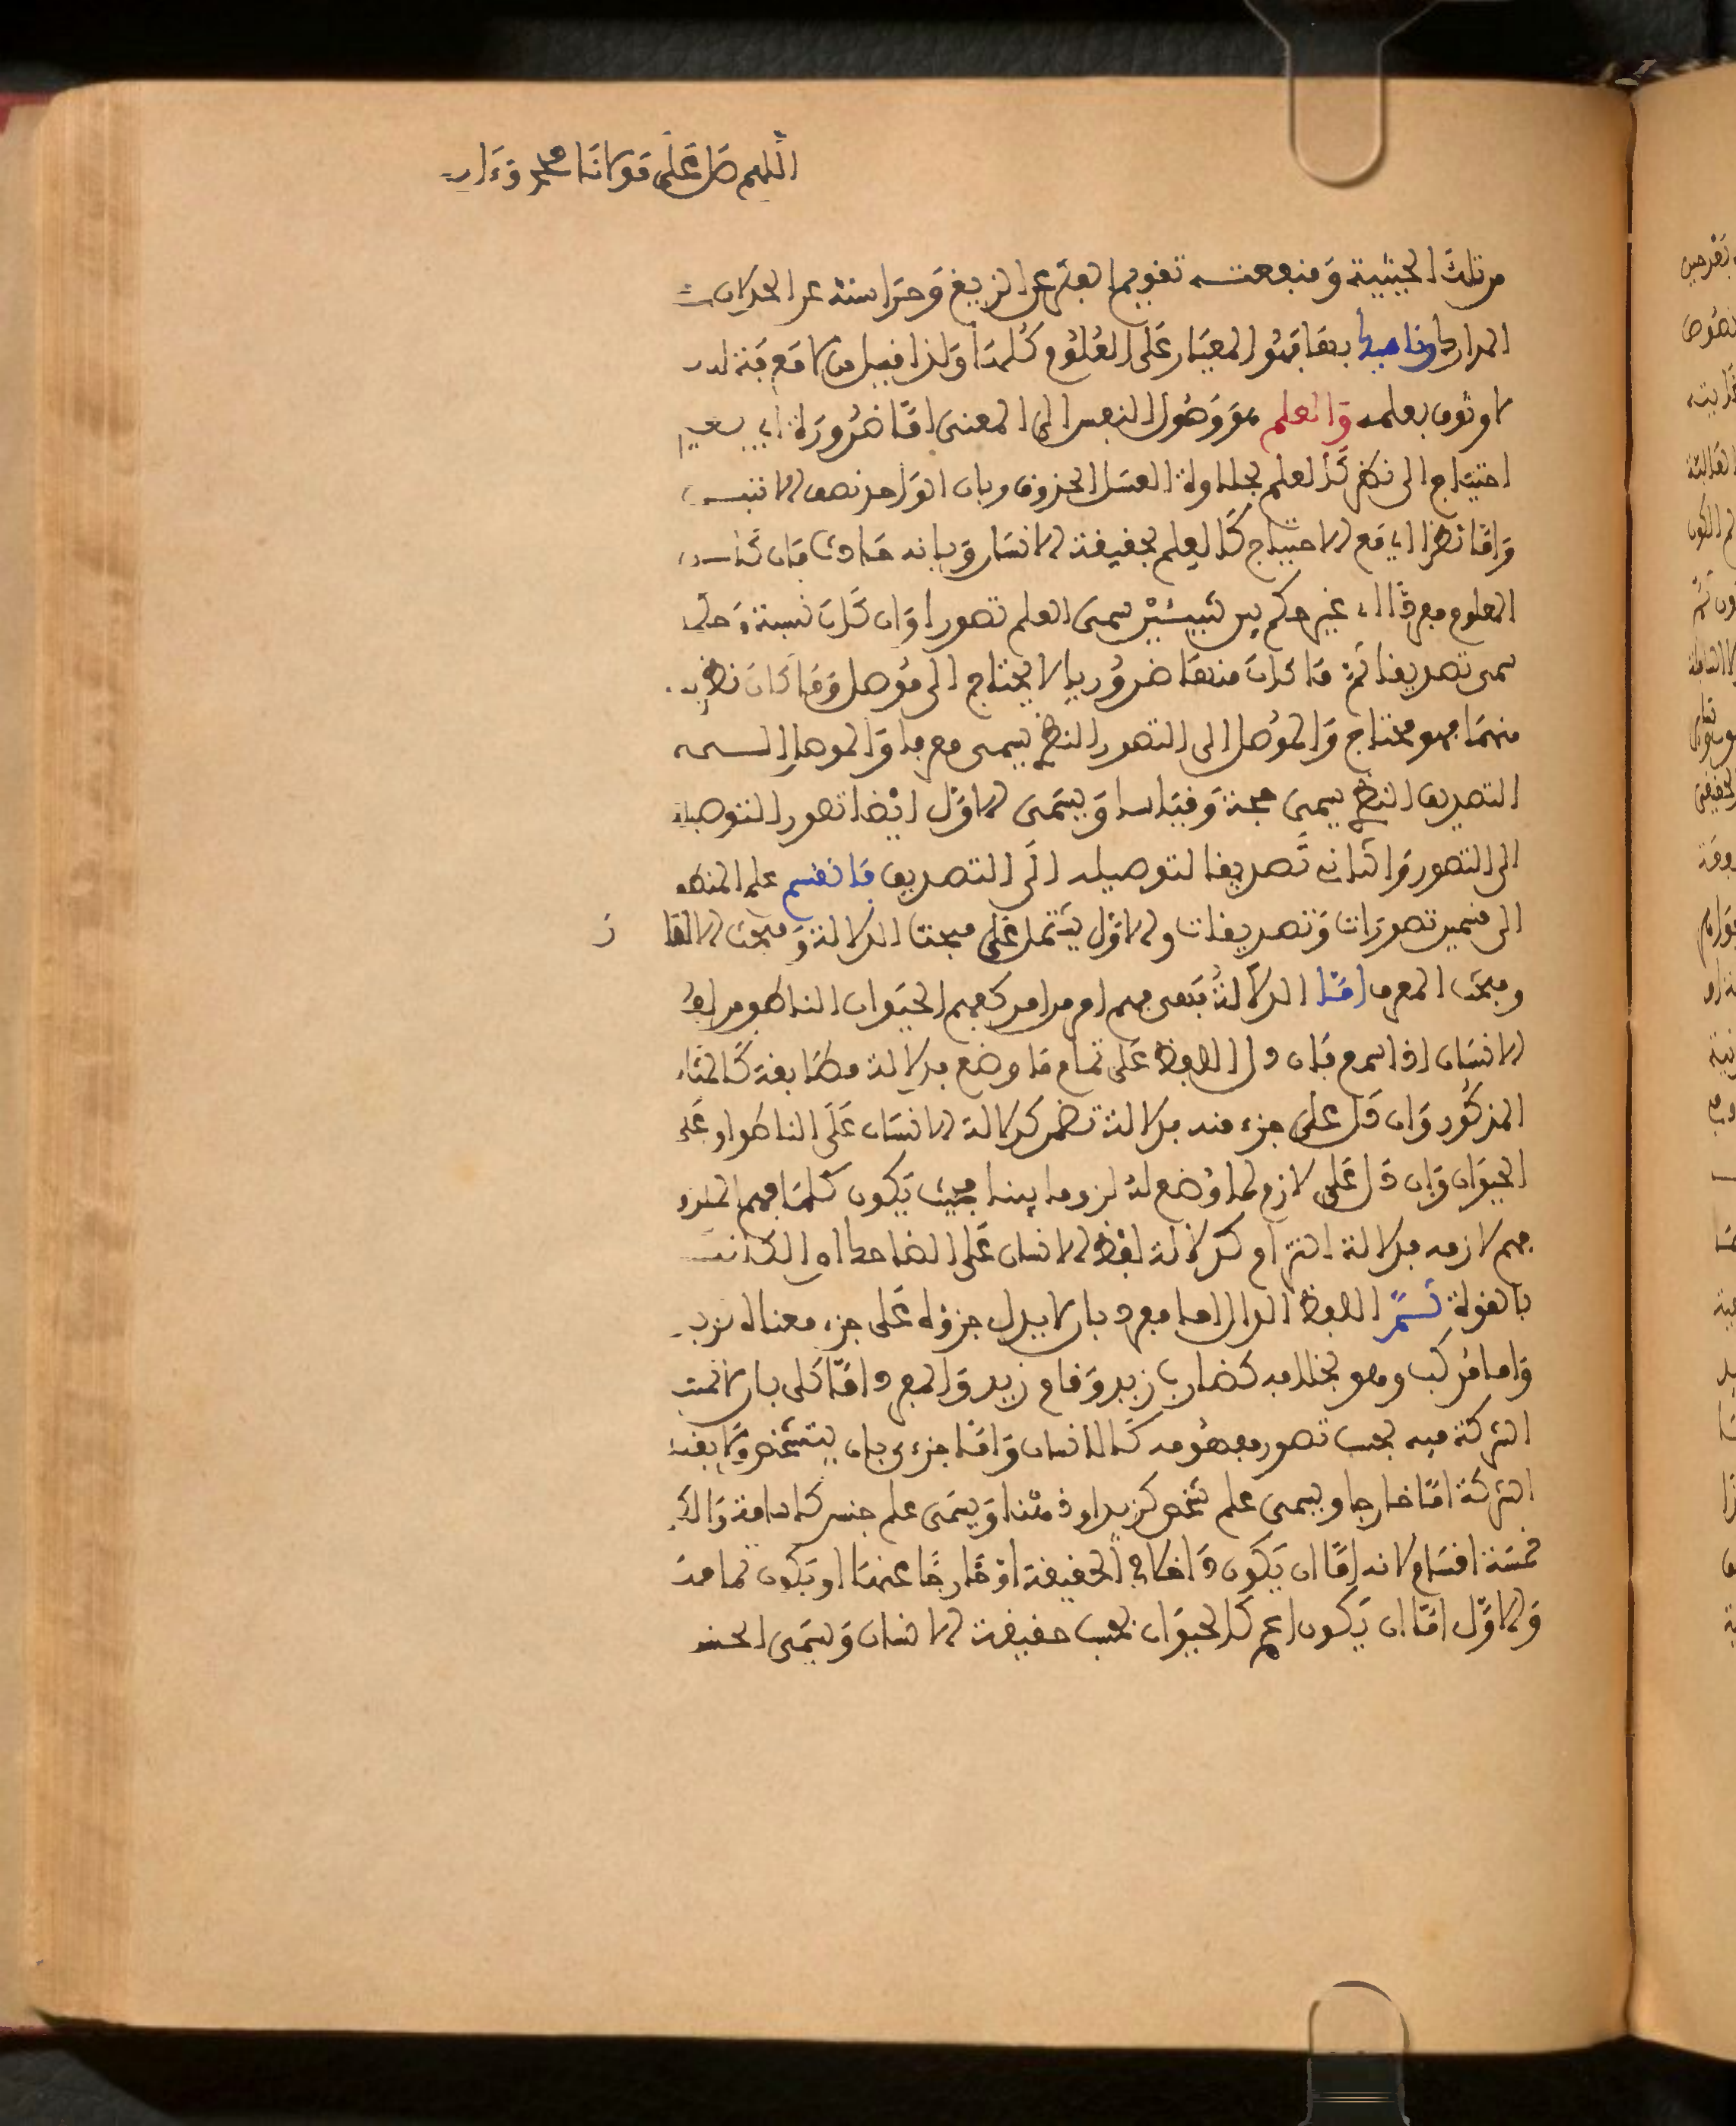 اللهم صل على مولانا محمد وءاله
من تلك الحيثية ومنفعته تقويم الفكر عن الزيغ وحراسته عن
المدارك وناهيك بها فهو المعيار على العلوم كلها ولذا قيل من لا معرفة له
لا وثوق بعلمه والعلم هو وصول النفس الى المعنى اما ضرورة اي بغير
احتياج الى نظر كالعلم بحلاوة العسل المذوق وبان الواحد نصف الاثنين
واما نظرا اي مع الاحتياج كالعلم بحقيقة الانسان وبانه حادث فان كان
المعلوم مفردا اي غير حكم بين شيئين سمي العلم تصورا وان كان نسبة وحكما
سمي تصديقا ثم ما كان منهما ضروريا لا يحتاج الى موصل وما كان نظريا
منهما فهو محتاج والموصل الى التصور النظري يسمى معرفا والموصل الى
التصديق النظري يسمى حجة وقياسا ويسمى الاول ايضا تصورا لتوصيله
الى التصور والثاني تصديقا لتوصيله الى التصديق فانقسم علم المنطق
الى قسمين تصورات وتصديقات والاول يشتمل على مبحث الدلالة ومبحث الالفاظ
ومبحث المعرف اما الدلالة فهي فهم امر من امر كفهم الحيوان الناطق من لفظ
الانسان اذا سمع فان دل اللفظ على تمام ما وضع فدلالة مطابقة كالمثال
المذكور وان دل على جزء منه فدلالة تضمن كدلالة الانسان على الناطق او على
الحيوان وان دل على لازم لما وضع له لزوما بينا بحيث يكون كلما فهم الملزوم
فهم لازمه فدلالة التزام كدلالة لفظ الانسان على الضاحك او الكاتب
بالقوة ثم اللفظ الدال اما مفرد بان لا يدل جزؤه على جزء معناه كزيد
واما مركب وهو بخلافه كضارب زيد وقام زيد والمفرد اما كلي بان لا تمتنع
الشركة فيه بحسب تصور مفهومه كالانسان واما جزءي بان يتشخص ولا يقبل
الشركة اما خارجا ويسمى علم شخص كزيد او ذهنا ويسمى علم جنس كاسامة والكلي
خمسة اقسام لانه اما ان يكون داخلا في الحقيقة او خارجا عنها او يكون تمامها
والاول اما ان يكون اعم كالحيوان بحسب حقيقة الانسان ويسمى الجنس